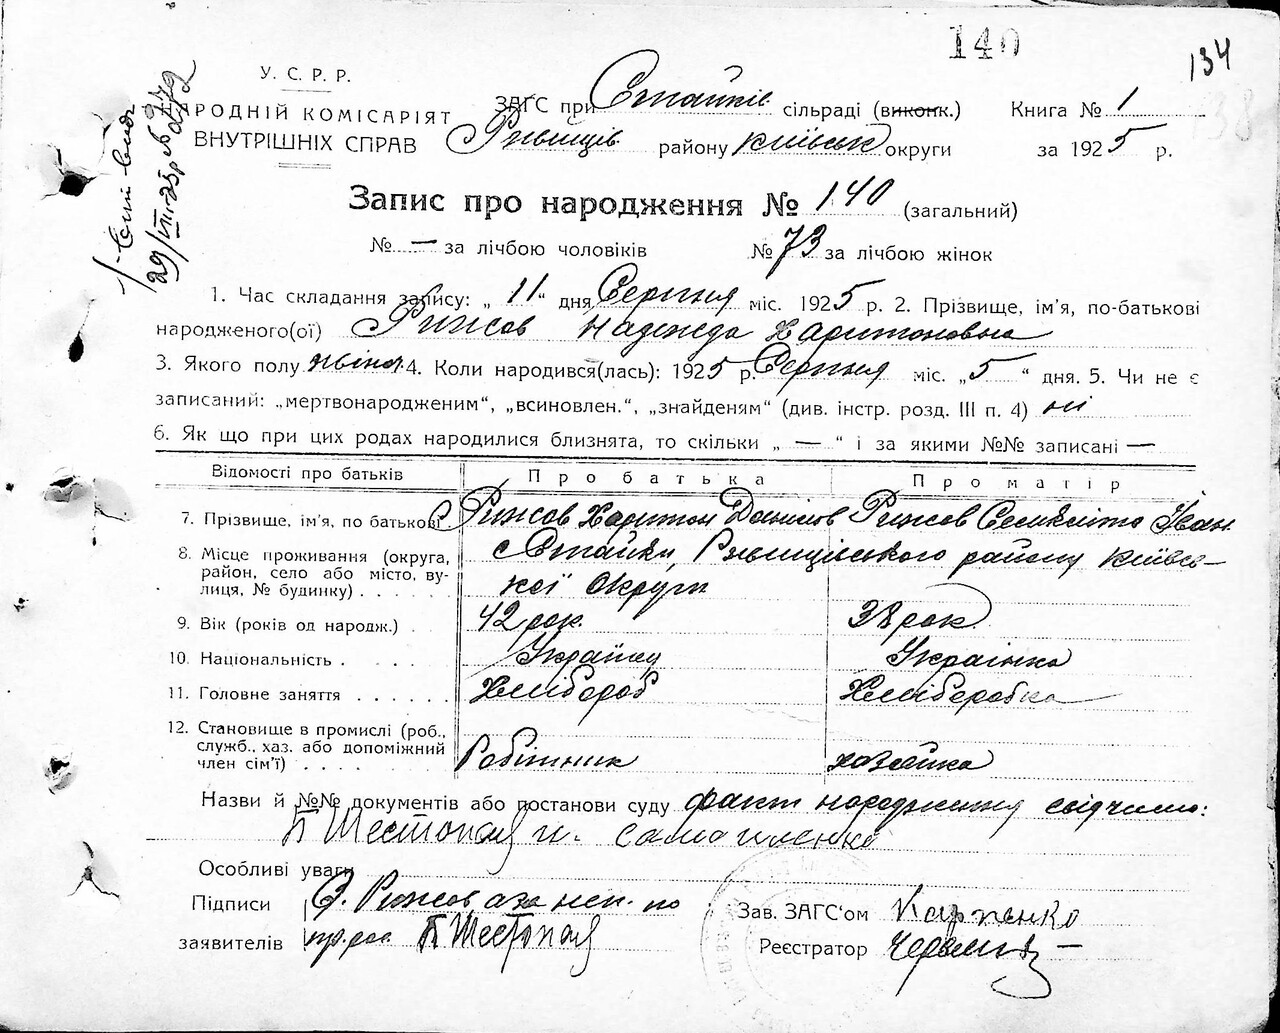 140
134
38
У. С. Р. Р.
НАРОДНІЙ КОМІСАРІЯТ
ВНУТРІШНІХ СПРАВ
ЗАГС при Стайків сільраді (виконк.) Книга № 1
Ржищів району Київськ округи за 1925 р.
Запис про народження № 140 (загальний)
№ — за лічбою чоловіків № 73 за лічбою жінок
1. Час складання запису: „ 11 “ дня Серпня міс. 1925 р. 2. Прізвище, ім'я, по-батькові
народженого(ої) Рижов Надежда Харитоновна
3. Якого полу жіноч. 4. Коли народився(лась): 1925 р. Серпня міс. „ 5 “ дня. 5. Чи не є
записаний: „мертвонародженим“, „всиновлен.“, „знайденям“ (див. інстр. розд. III п. 4) ні
6. Як що при цих родах народилися близнята, то скільки „ — “ і за якими №№ записані —
Відомості про батьків Про батька Про матір
7. Прізвище, ім'я, по батькові Рижов Харитон Данилов Рижов Іван
8. Місце проживання (округа, район, село або місто, вулиця, № будинку) с Стайки, Ржищівського району Київсь-
кої Округи
9. Вік (років од народж.) 42 рок. 38 рок
10. Національність Українец Українка
11. Головне заняття Хлибороб Хлиборобка
12. Становище в промислі (роб., служб., хаз. або допоміжний член сім'ї) Робітник хозяйка
Назви й №№ документів або постанови суду факт народження свідчили:
П Шестопал и. Самойленко
Особливі уваги
Підписи Рижов, а за неп. по
заявителів П Шестопал
Зав. ЗАГС'ом Карпенко
Реєстратор